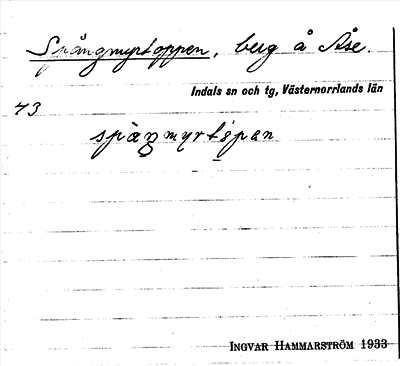 Spångmyrtoppen, berg å Åse.
Indals sn och tg, Västernorrlands län
43
INGVAR HAMMARSTRÖM 1933